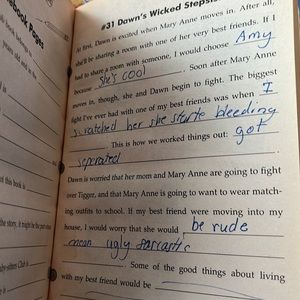 #31 Dawn's Wicked Stepsis
At first, Dawn is excited when Mary Anne moves in. After all,
she'll be sharing a room with one of her very best friends. If I
had to share a room with someone, I would choose Amy
because she's cool. Soon after Mary Anne
moves in, though, she and Dawn begin to fight. The biggest
fight I've ever had with one of my best friends was when I
scratched her she starte bleeding
. This is how we worked things out: got
seperated.
Dawn is worried that her mom and Mary Anne are going to fight
over Tigger, and that Mary Anne is going to want to wear match-
ing outfits to school. If my best friend were moving into my
house, I would worry that she would be rude
mean ugly sarcastic
. Some of the good things about living
with my best friend would be
ebook Pages
years old and in the
of this book is
the story, it might be the part when
-sitters Club is